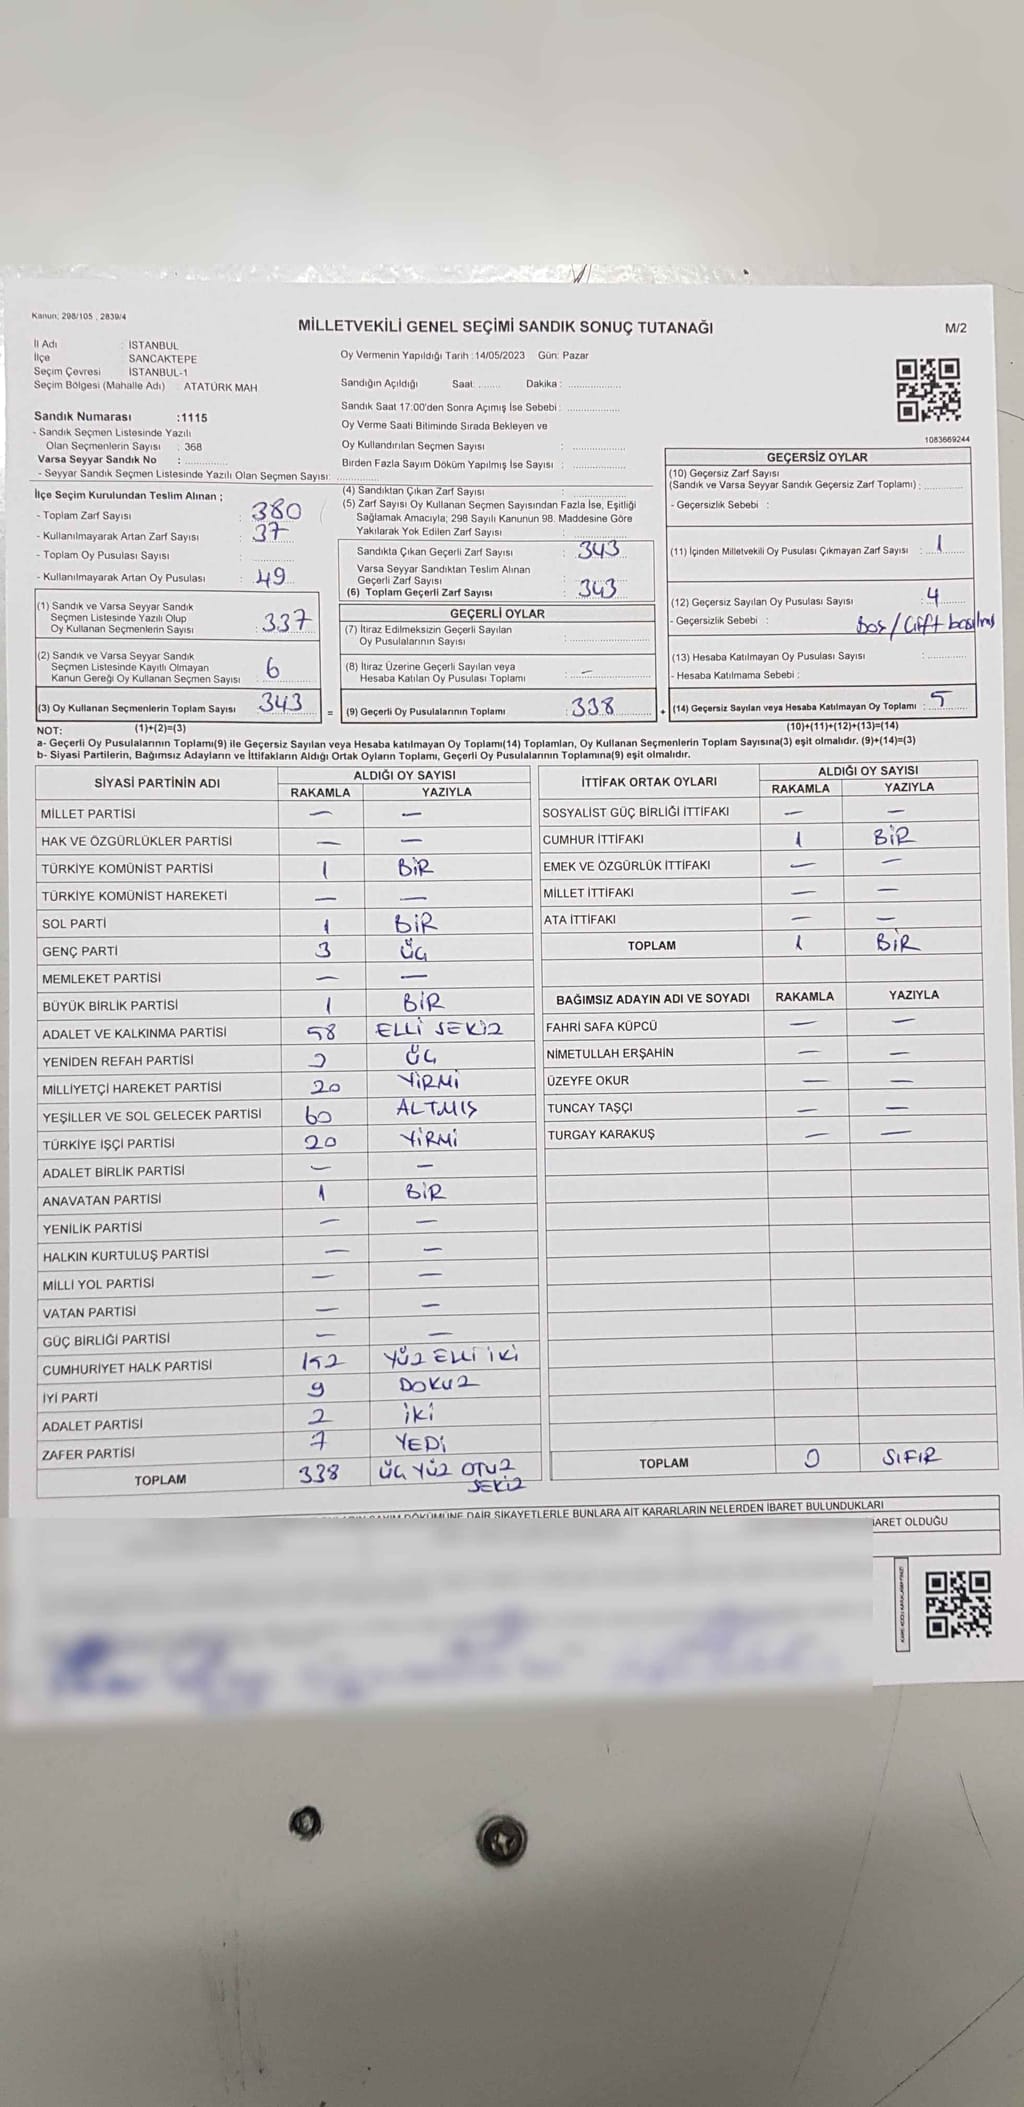 Kanun: 298/105 , 2839/4
MİLLETVEKİLİ GENEL SEÇİMİ SANDIK SONUÇ TUTANAĞI
M/2
İl Adı : İSTANBUL
İlçe SANCAKTEPE
Seçim Çevresi İSTANBUL-1
Seçim Bölgesi (Mahalle Adı) : ATATÜRK MAH
Sandık Numarası :1115
- Sandık Seçmen Listesinde Yazılı
Olan Seçmenlerin Sayısı : 368
Varsa Seyyar Sandık No :
- Seyyar Sandık Seçmen Listesinde Yazılı Olan Seçmen Sayısı:
Oy Vermenin Yapıldığı Tarih :14/05/2023 Gün: Pazar
Sandığın Açıldığı Saat: Dakika :
Sandık Saat 17:00'den Sonra Açımış İse Sebebi :
Oy Verme Saati Bitiminde Sırada Bekleyen ve
Oy Kullandırılan Seçmen Sayısı :
Birden Fazla Sayım Döküm Yapılmış İse Sayısı :
1083669244
İlçe Seçim Kurulundan Teslim Alınan ;
- Toplam Zarf Sayısı : 380
- Kullanılmayarak Artan Zarf Sayısı : 37
- Toplam Oy Pusulası Sayısı :
- Kullanılmayarak Artan Oy Pusulası : 49
(1) Sandık ve Varsa Seyyar Sandık
Seçmen Listesinde Yazılı Olup
Oy Kullanan Seçmenlerin Sayısı : 337
(2) Sandık ve Varsa Seyyar Sandık
Seçmen Listesinde Kayıtlı Olmayan
Kanun Gereği Oy Kullanan Seçmen Sayısı : 6
(3) Oy Kullanan Seçmenlerin Toplam Sayısı : 343
(4) Sandıktan Çıkan Zarf Sayısı :
(5) Zarf Sayısı Oy Kullanan Seçmen Sayısından Fazla İse, Eşitliği
Sağlamak Amacıyla; 298 Sayılı Kanunun 98. Maddesine Göre
Yakılarak Yok Edilen Zarf Sayısı :
Sandıkta Çıkan Geçerli Zarf Sayısı : 343
Varsa Seyyar Sandıktan Teslim Alınan
Geçerli Zarf Sayısı :
(6) Toplam Geçerli Zarf Sayısı : 343
GEÇERLİ OYLAR
(7) İtiraz Edilmeksizin Geçerli Sayılan
Oy Pusulalarının Sayısı :
(8) İtiraz Üzerine Geçerli Sayılan veya
Hesaba Katılan Oy Pusulası Toplamı : —
= (9) Geçerli Oy Pusulalarının Toplamı : 338
GEÇERSİZ OYLAR
(10) Geçersiz Zarf Sayısı
(Sandık ve Varsa Seyyar Sandık Geçersiz Zarf Toplamı) :
- Geçersizlik Sebebi :
(11) İçinden Milletvekili Oy Pusulası Çıkmayan Zarf Sayısı : 1
(12) Geçersiz Sayılan Oy Pusulası Sayısı : 4
- Geçersizlik Sebebi : Boş / Çift basılmış
(13) Hesaba Katılmayan Oy Pusulası Sayısı :
- Hesaba Katılmama Sebebi :
+ (14) Geçersiz Sayılan veya Hesaba Katılmayan Oy Toplamı : 5
NOT: (1)+(2)=(3) (10)+(11)+(12)+(13)=(14)
a- Geçerli Oy Pusulalarının Toplamı(9) ile Geçersiz Sayılan veya Hesaba katılmayan Oy Toplamı(14) Toplamları, Oy Kullanan Seçmenlerin Toplam Sayısına(3) eşit olmalıdır. (9)+(14)=(3)
b- Siyasi Partilerin, Bağımsız Adayların ve İttifakların Aldığı Oy Sayıları, Geçerli Oy Pusulalarının Toplamına(9) eşit olmalıdır.
SİYASİ PARTİNİN ADI ALDIĞI OY SAYISI
RAKAMLA YAZIYLA
MİLLET PARTİSİ — —
HAK VE ÖZGÜRLÜKLER PARTİSİ — —
TÜRKİYE KOMÜNİST PARTİSİ 1 BİR
TÜRKİYE KOMÜNİST HAREKETİ — —
SOL PARTİ 1 BİR
GENÇ PARTİ 3 ÜÇ
MEMLEKET PARTİSİ — —
BÜYÜK BİRLİK PARTİSİ 1 BİR
ADALET VE KALKINMA PARTİSİ 58 ELLİ SEKİZ
YENİDEN REFAH PARTİSİ 3 ÜÇ
MİLLİYETÇİ HAREKET PARTİSİ 20 YİRMİ
YEŞİLLER VE SOL GELECEK PARTİSİ 60 ALTMIŞ
TÜRKİYE İŞÇİ PARTİSİ 20 YİRMİ
ADALET BİRLİK PARTİSİ — —
ANAVATAN PARTİSİ 1 BİR
YENİLİK PARTİSİ — —
HALKIN KURTULUŞ PARTİSİ — —
MİLLİ YOL PARTİSİ — —
VATAN PARTİSİ — —
GÜÇ BİRLİĞİ PARTİSİ — —
CUMHURİYET HALK PARTİSİ 152 YÜZ ELLİ İKİ
İYİ PARTİ 9 DOKUZ
ADALET PARTİSİ 2 İKİ
ZAFER PARTİSİ 7 YEDİ
TOPLAM 338 ÜÇ YÜZ OTUZ
SEKİZ
İTTİFAK ORTAK OYLARI ALDIĞI OY SAYISI
RAKAMLA YAZIYLA
SOSYALİST GÜÇ BİRLİĞİ İTTİFAKI — —
CUMHUR İTTİFAKI 1 BİR
EMEK VE ÖZGÜRLÜK İTTİFAKI — —
MİLLET İTTİFAKI — —
ATA İTTİFAKI — —
TOPLAM 1 BİR
BAĞIMSIZ ADAYIN ADI VE SOYADI RAKAMLA YAZIYLA
FAHRİ SAFA KÜPCÜ — —
NİMETULLAH ERŞAHİN — —
ÜZEYFE OKUR — —
TUNCAY TAŞÇI — —
TURGAY KARAKUŞ — —
TOPLAM 0 SIFIR
DÖKÜMÜNE DAİR ŞİKAYETLERLE BUNLARA AİT KARARLARIN NELERDEN İBARET BULUNDUKLARI
OLDUĞU